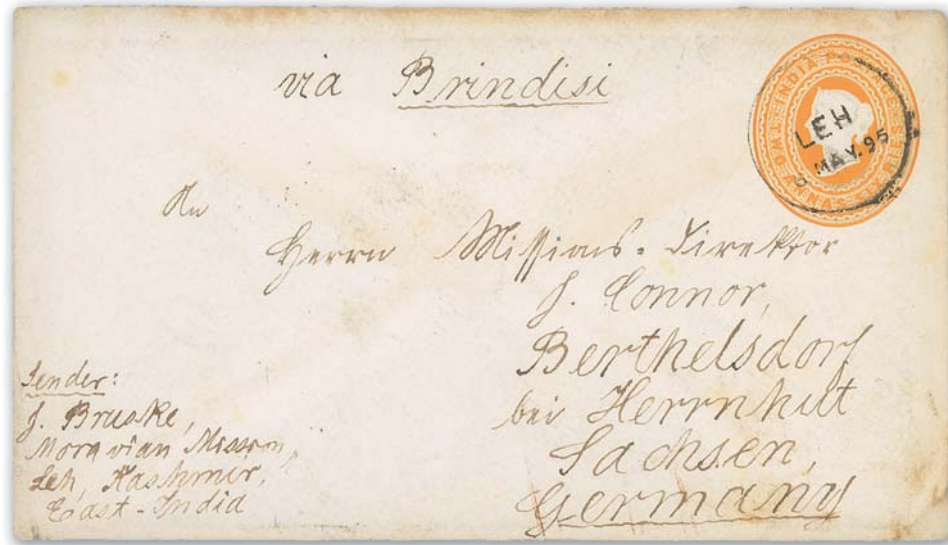 via Brindisi
LEH
MAY. 95
An
Herrn Missions-Direktor
J. Connor,
Berthelsdorf
bei Herrnhut
Sachsen,
Germany
Sender:
J. Bruske,
Moravian Mission,
Leh, Kashmir,
East-India